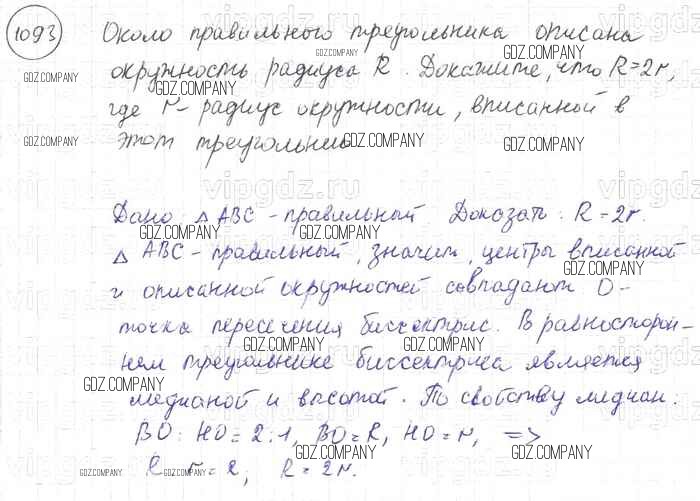 1093 Около правильного треугольника описана
окружность радиуса R. Докажите, что R=2r,
где r - радиус окружности, вписанной в
этот треугольник
Дано: △ ABC - правильный Доказать: R = 2r.
△ ABC - правильный, значит, центры вписанной
и описанной окружностей совпадают O -
точка пересечения биссектрис. В равносторон-
нем треугольнике биссектриса является
медианой и высотой. По свойству медиан:
BO : HO = 2:1, BO = R, HO = r, =>
R r = 2, R = 2r.
GDZ.COMPANY
vipgdz.ru